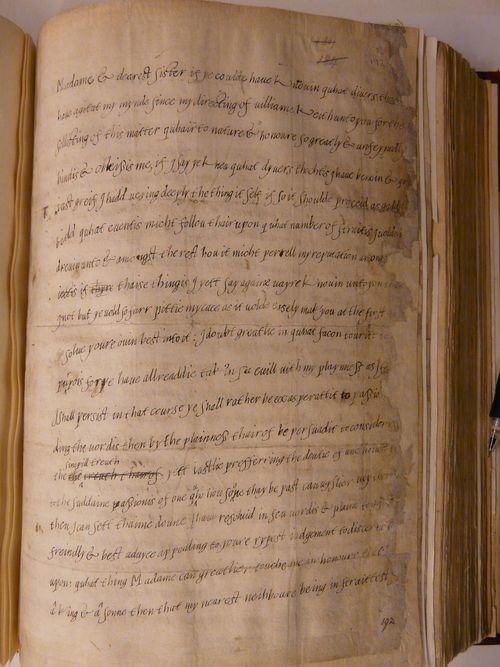 192
Madame & dearest sister if ye coulde have knouin quhat divers thoch
have agitat my mynde since my directing of williame keith unto you for the
sollisting of this matter quhairto nature & honoure so greatly & unfeynedly
bindis & oblisis me, if I say ye kneu quhat dyvers thochtis I have bene in & qu
iust greif I hadd ueying deeply the thing it self if so it shoulde proceid, as goddis
bidd quhat euentis micht follou thairupon quhat number of straitis I uolde
drevin unto & amongst the rest hou it micht perrell my reputation amongst
if thaise thingis I yett say againe uayre knouin unto you
not but ye uold so farr pittie my cace as it uolde easely mak you at the first
solve youre ouin best into it; I doubt greatlie in quhat facon to urite
for ye have allreaddie takin sa evill with my playnness as
I shall persist in that course ye shall rather be exasperattit to passio
ding the uordis then by the plainness thairof be persuadit to considere
simpill treuth
the treuth thairof yett iustlie præferring the deutie of ane honest
to the suddaine passionis of one quho hou sone thay be past can uyselier uey the
then I can sett thaime doune I have resolvid in feu uordis & plaine to
freindly & best advice appealing to youre rypest iudgement to discerne
upon quhat thing Madame can greatlier touche me in honoure that
a king & a sonne then that my nearest neihboure being in straittest
192